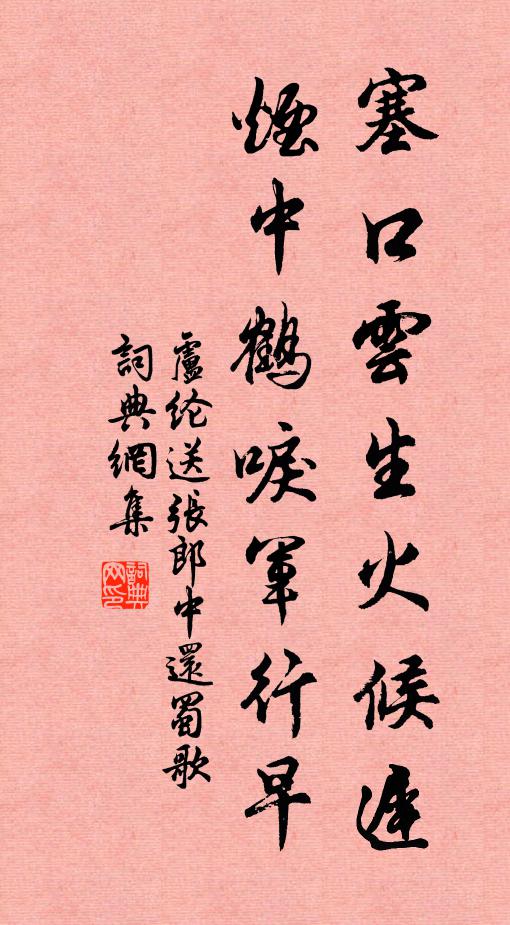 塞口雲生火候遲
煙中鶴唳軍行早
盧纶送張郎中還蜀歌
詞典網集
詞典網印